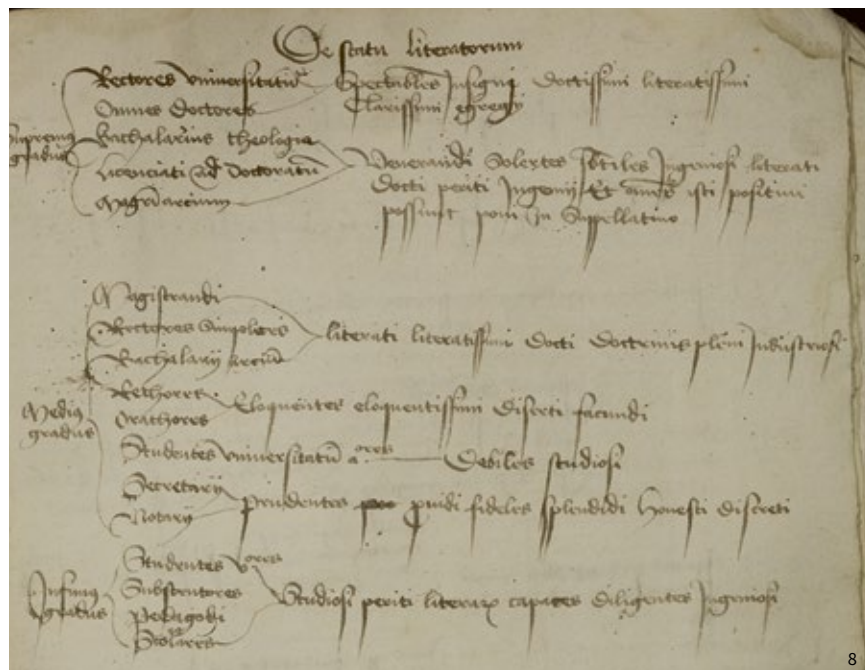 De statu literatorum
Supremus gradus
Rectores vniuersitatum
Omnes doctores
Spectabiles Insigni doctissimi literatissimi
Clarissimi egregij
Bachalarius theologie
Licenciati ad doctoratum
Magistri arcium
Venerandi Solertes Ingeniosi literati
docti periti Ingenij Et omnes isti positiui
possunt poni in Suppellatiuo
Medius gradus
Magistrandi
Rectores
Bachalarij arcium
literati literatissimi docti doctrinis pleni Industriosi
Rethores
Orathores
Eloquentes eloquentissimi diserti facundi
Studentes vniuersitatum
studiosi
Secretarij
Notarij
prudentes prouidi fideles splendidi honesti discreti
Infimus gradus
Studentes
Pedagogi
Scolares
Studiosi periti literarum capaces diligentes Ingeniosi
8